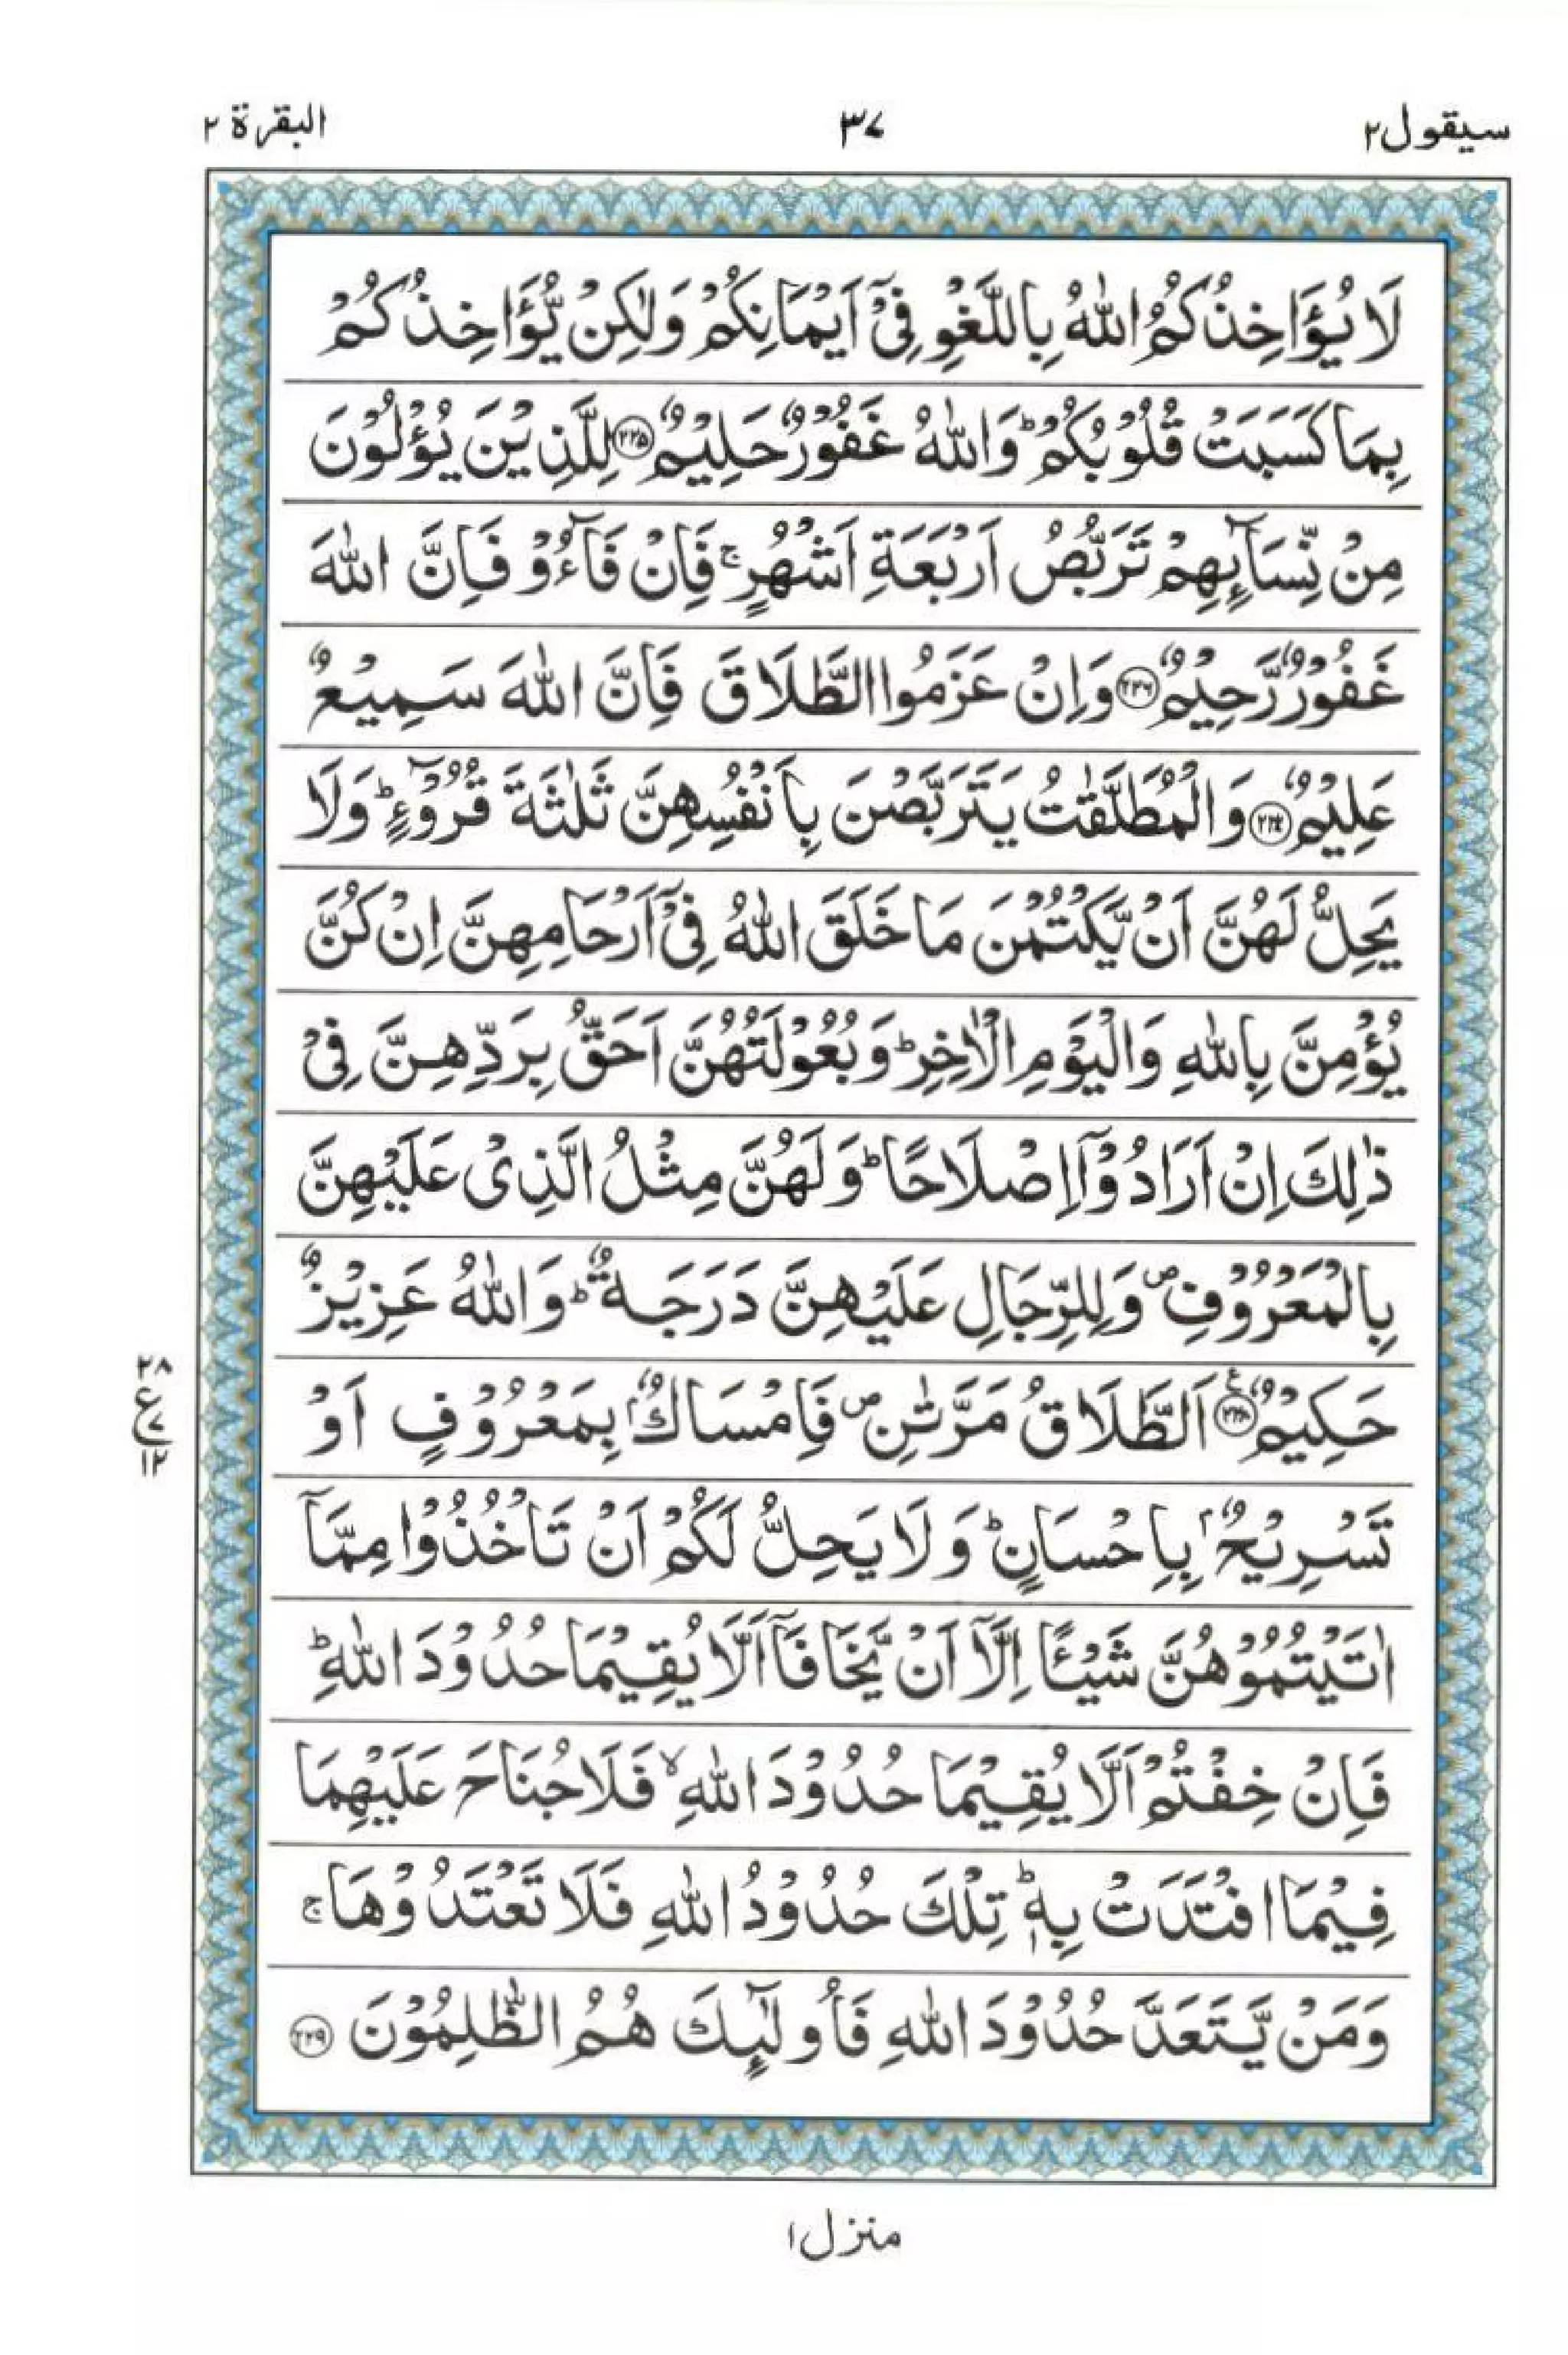 سيقول ٢
٣٧
البقرة ٢
لَا يُؤَاخِذُكُمُ اللّٰهُ بِاللَّغْوِ فِىْٓ اَيْمَانِكُمْ وَلٰكِنْ يُّؤَاخِذُكُمْ
بِمَا كَسَبَتْ قُلُوْبُكُمْ ؕ وَاللّٰهُ غَفُوْرٌ حَلِيْمٌ ﴿۲۲۵﴾ لِلَّذِيْنَ يُؤْلُوْنَ
مِنْ نِّسَآئِهِمْ تَرَبُّصُ اَرْبَعَةِ اَشْهُرٍ ۚ فَاِنْ فَآءُوْ فَاِنَّ اللّٰهَ
غَفُوْرٌ رَّحِيْمٌ ﴿۲۲۶﴾ وَاِنْ عَزَمُوا الطَّلَاقَ فَاِنَّ اللّٰهَ سَمِيْعٌ
عَلِيْمٌ ﴿۲۲۷﴾ وَالْمُطَلَّقٰتُ يَتَرَبَّصْنَ بِاَنْفُسِهِنَّ ثَلٰثَةَ قُرُوْٓءٍ ؕ وَلَا
يَحِلُّ لَهُنَّ اَنْ يَّكْتُمْنَ مَا خَلَقَ اللّٰهُ فِىْٓ اَرْحَامِهِنَّ اِنْ كُنَّ
يُؤْمِنَّ بِاللّٰهِ وَالْيَوْمِ الْاٰخِرِ ؕ وَبُعُوْلَتُهُنَّ اَحَقُّ بِرَدِّهِنَّ فِىْ
ذٰلِكَ اِنْ اَرَادُوْٓا اِصْلَاحًا ؕ وَلَهُنَّ مِثْلُ الَّذِىْ عَلَيْهِنَّ
بِالْمَعْرُوْفِ ۪ وَلِلرِّجَالِ عَلَيْهِنَّ دَرَجَةٌ ؕ وَاللّٰهُ عَزِيْزٌ
حَكِيْمٌ ﴿۲۲۸﴾ۧ اَلطَّلَاقُ مَرَّتٰنِ ۪ فَاِمْسَاكٌۢ بِمَعْرُوْفٍ اَوْ
٢٨
ع ٧
١٢
تَسْرِيْحٌۢ بِاِحْسَانٍ ؕ وَلَا يَحِلُّ لَكُمْ اَنْ تَاْخُذُوْا مِمَّآ
اٰتَيْتُمُوْهُنَّ شَيْئًا اِلَّآ اَنْ يَّخَافَآ اَلَّا يُقِيْمَا حُدُوْدَ اللّٰهِ ؕ
فَاِنْ خِفْتُمْ اَلَّا يُقِيْمَا حُدُوْدَ اللّٰهِ ۙ فَلَا جُنَاحَ عَلَيْهِمَا
فِيْمَا افْتَدَتْ بِهٖ ؕ تِلْكَ حُدُوْدُ اللّٰهِ فَلَا تَعْتَدُوْهَا ۚ
وَمَنْ يَّتَعَدَّ حُدُوْدَ اللّٰهِ فَاُولٰٓئِكَ هُمُ الظّٰلِمُوْنَ ﴿۲۲۹﴾
منزل ١